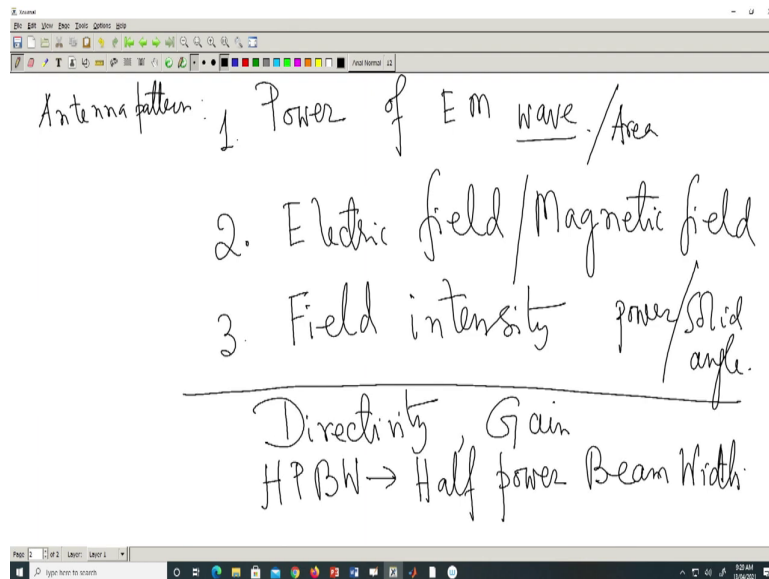 Xournal
File Edit View Page Tools Options Help
Anal Normal 12
Antenna pattern: 1. Power of EM wave/Area
2. Electric field/Magnetic field
3. Field intensity power/Solid angle.
Directivity, Gain
HPBW → Half power Beam Width.
Page 2 of 2 Layer: Layer 1
Type here to search
9:29 AM
13/04/2021